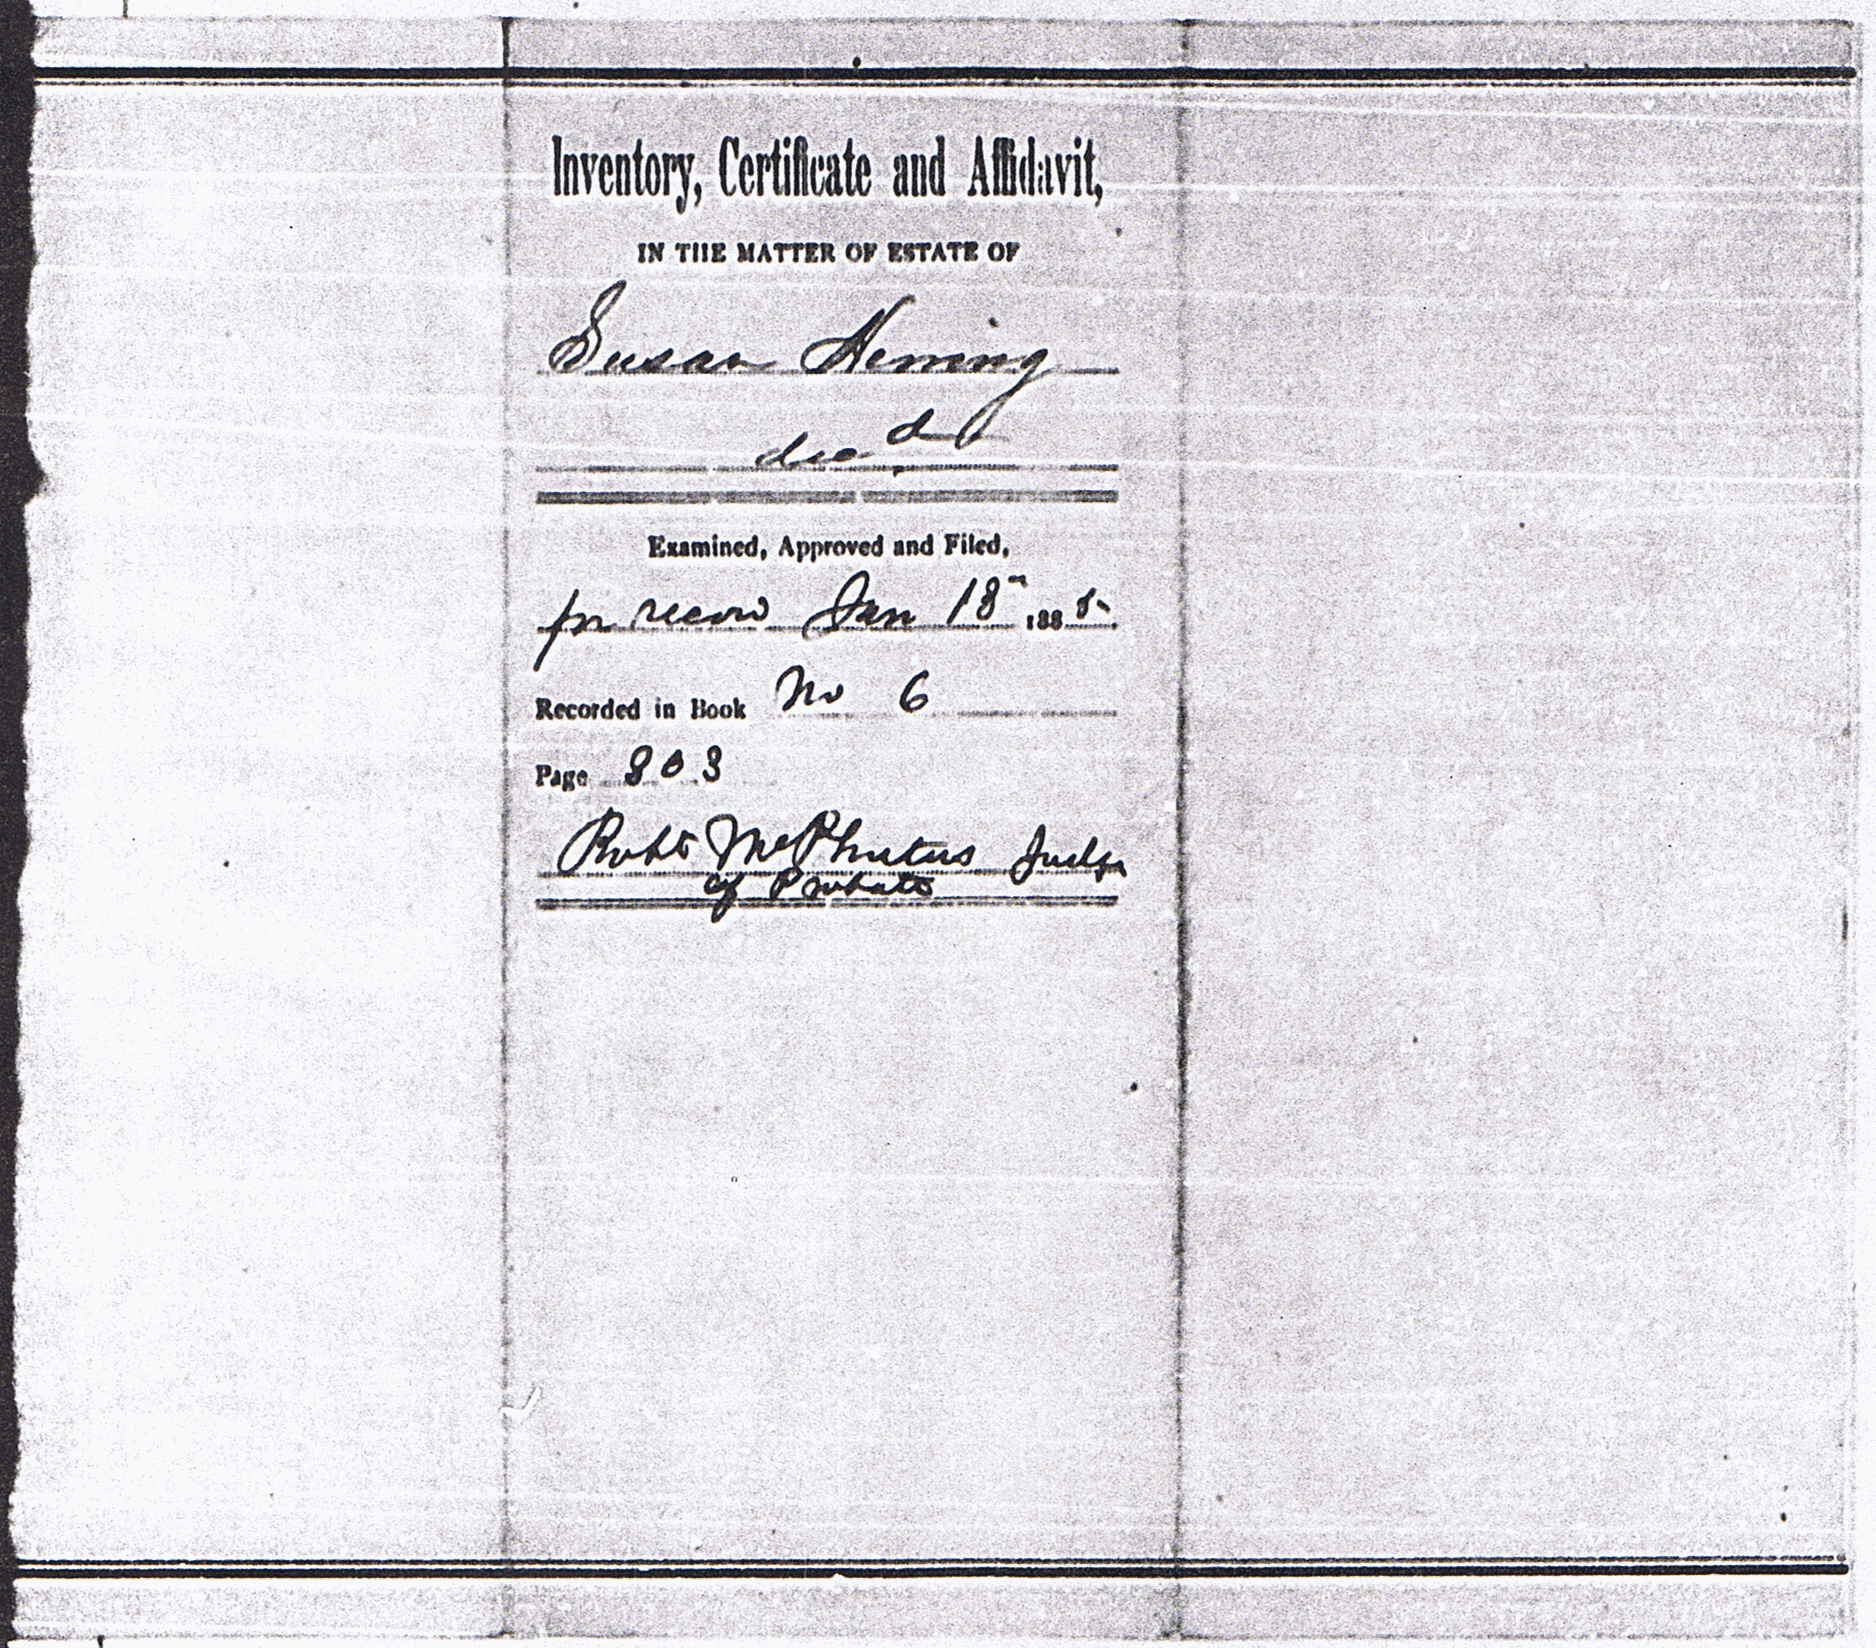 Inventory, Certificate and Affidavit,
IN THE MATTER OF ESTATE OF
Susan
decd
Examined, Approved and Filed,
for record Jan 18th 1885.
Recorded in Book No 6
Page 303
Robt Judge
of Probate